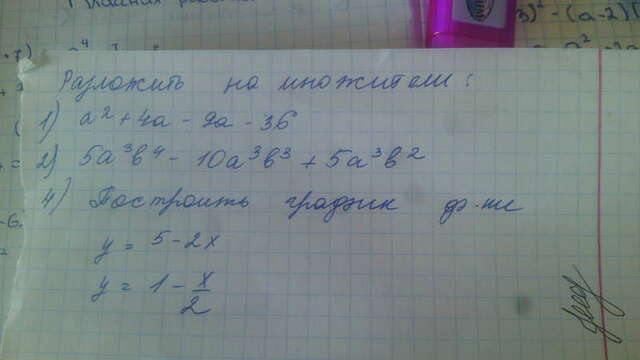 Разложить на множители:
1) a² + 4a - 9a - 36
2) 5a³b⁴ - 10a³b³ + 5a³b²
4) Построить график ф-ии
y = 5 - 2x
y = 1 - x/2
3)² - (a-2)(